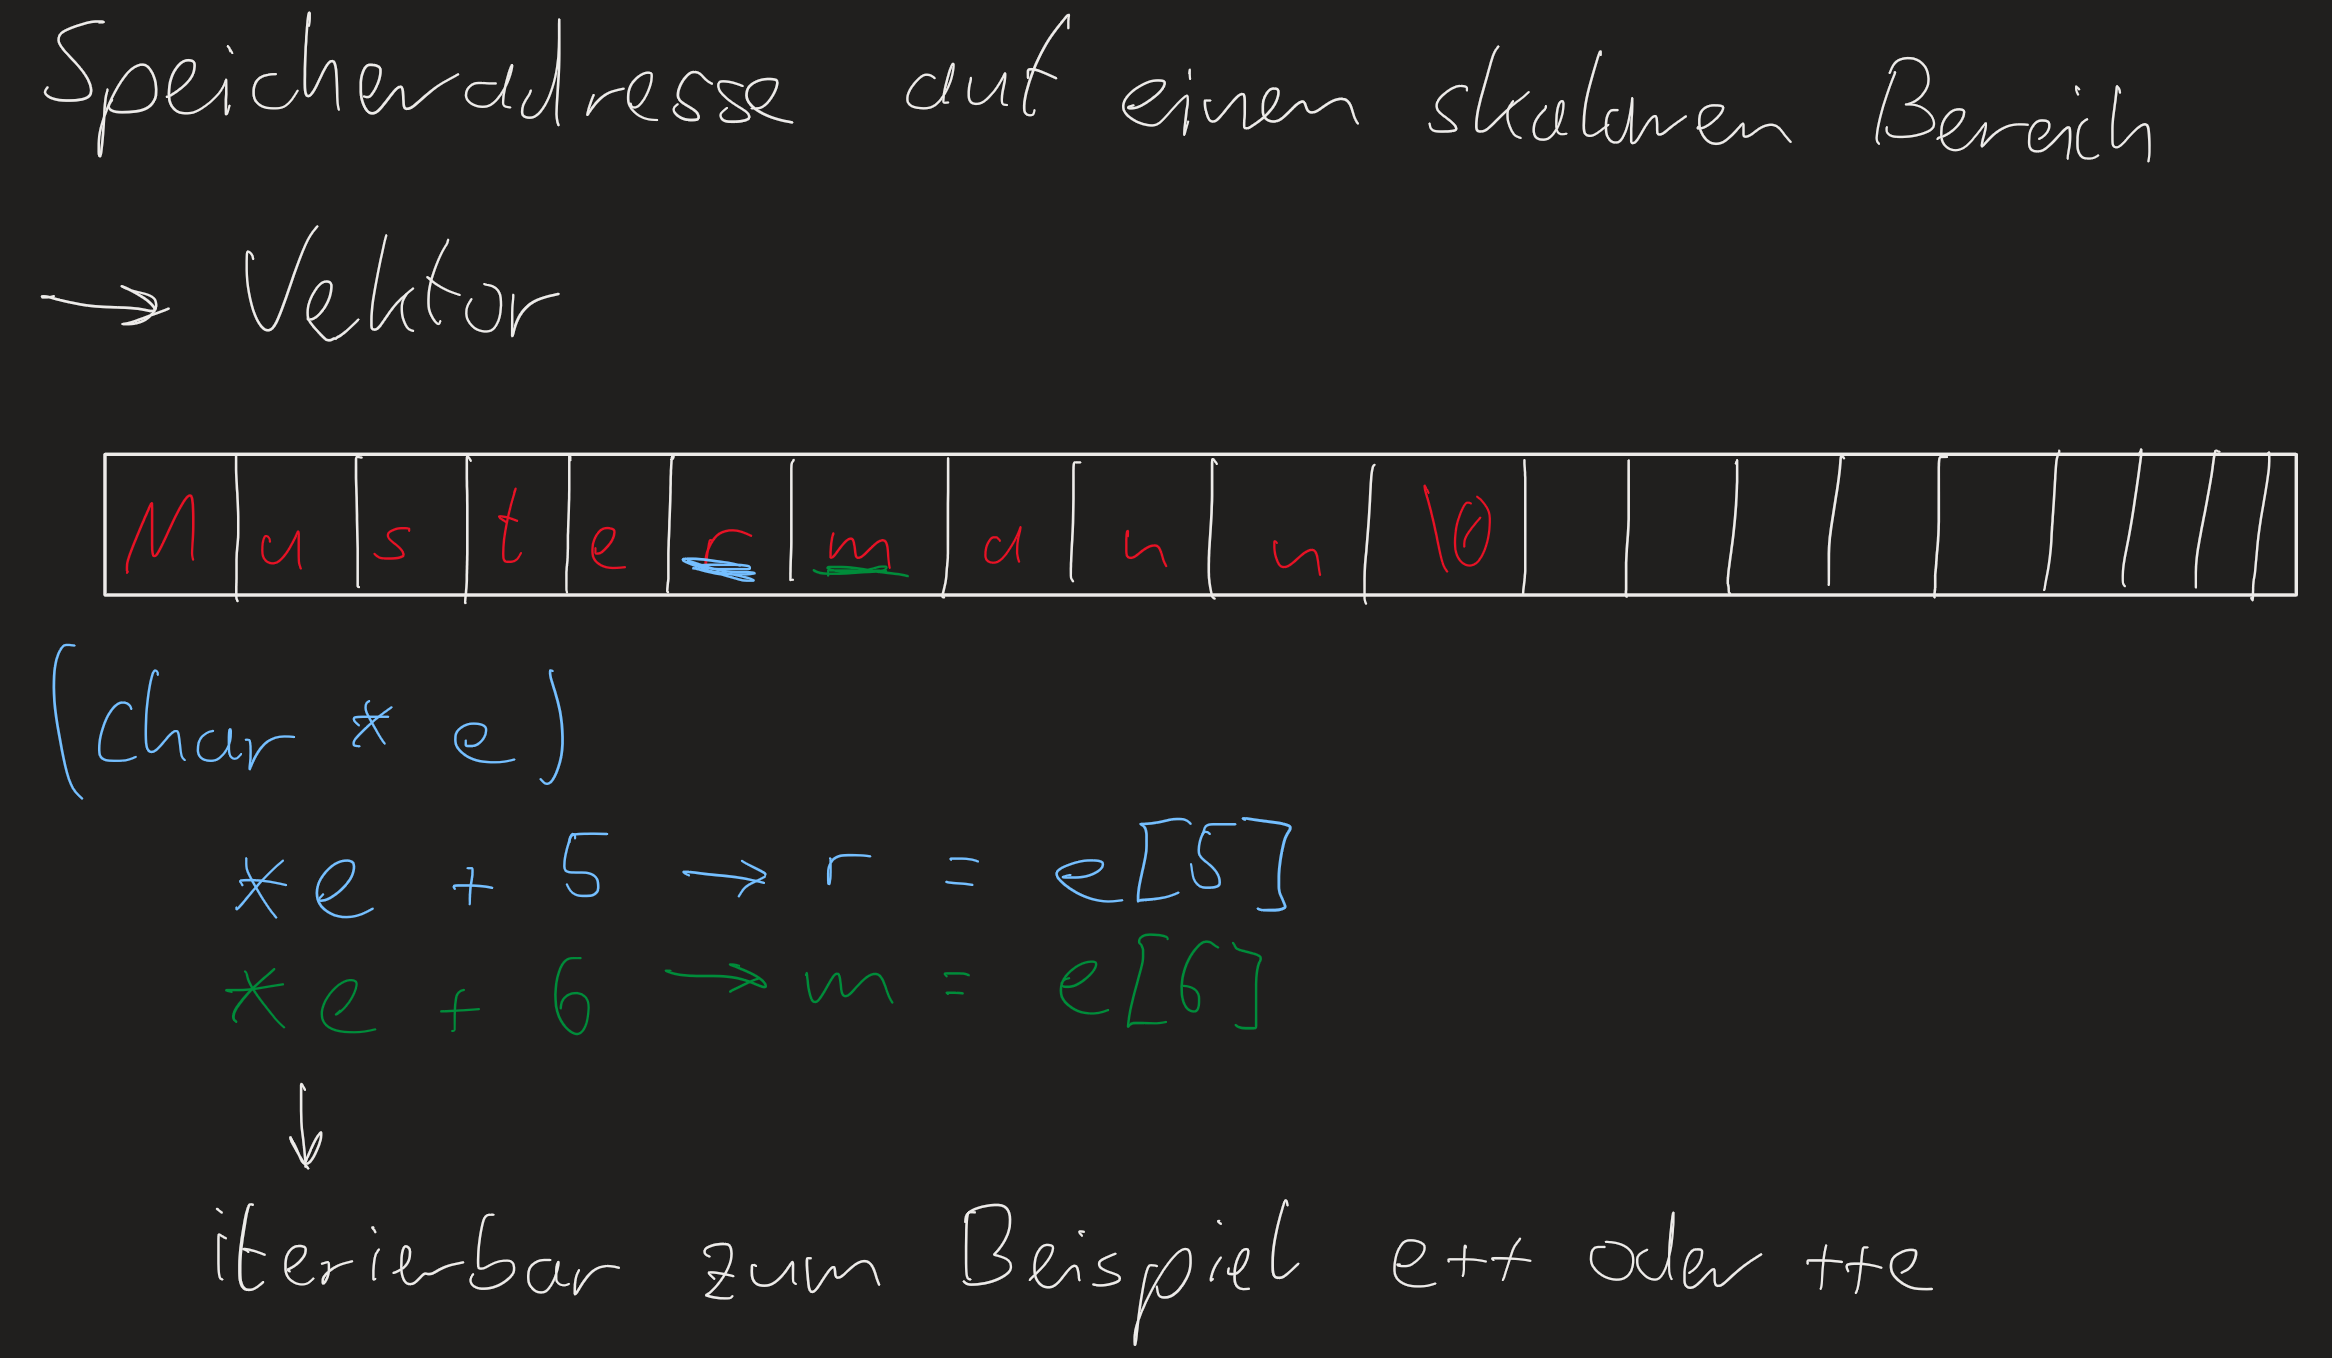 Speicheradresse auf einen skalaren Bereich
→ Vektor
M u s t e r m a n n \0
(char * e)
*e + 5 → r = e[5]
*e + 6 → m = e[6]
↓
iterierbar zum Beispiel e++ oder ++e